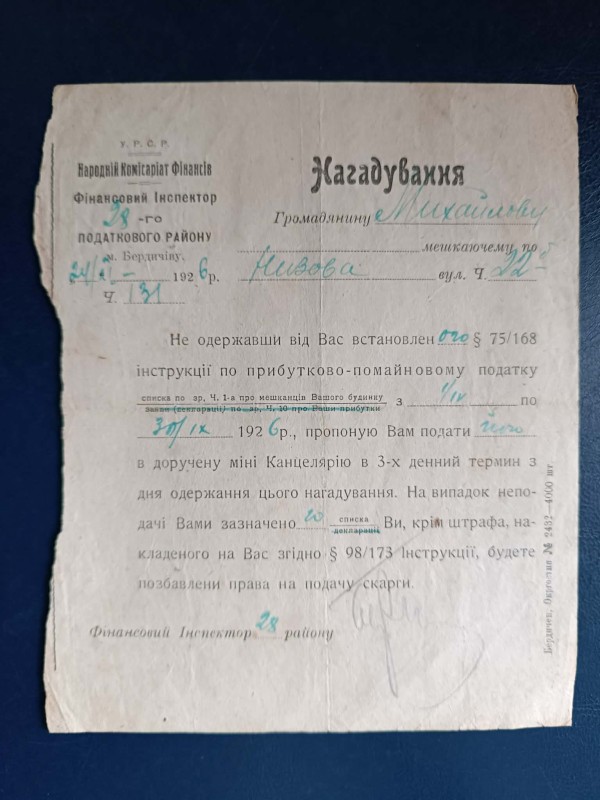 У. Р. С. Р.
Народній Комісаріат Фінансів
Фінансовий Інспектор
28 -го
ПОДАТКОВОГО РАЙОНУ
м. Бердичіву.
1926 р.
Ч. 131
Нагадування
Громадянину Михайлову
мешкаючему по
Низова вул. Ч. 22
Не одержавши від Вас встановлен ого § 75/168
інструкції по прибутково-помайновому податку
списка по зр. Ч. 1-а про мешканців Вашого будинку
заяви (декларації) по зр. Ч. 10 про Ваши прибутки
з 1/IX по
30/IX 1926 р., пропоную Вам подати його
в доручену міні Канцелярію в 3-х денний термин з
дня одержання цього нагадування. На випадок непо-
дачі Вами зазначено го списка
декларації
Ви, крім штрафа, на-
кладеного на Вас згідно § 98/173 Інструкції, будете
позбавлени права на подачу скарги.
Фінансовий Інспектор 28 району
Бердичев, Окрлития № 2432—4000 шт.